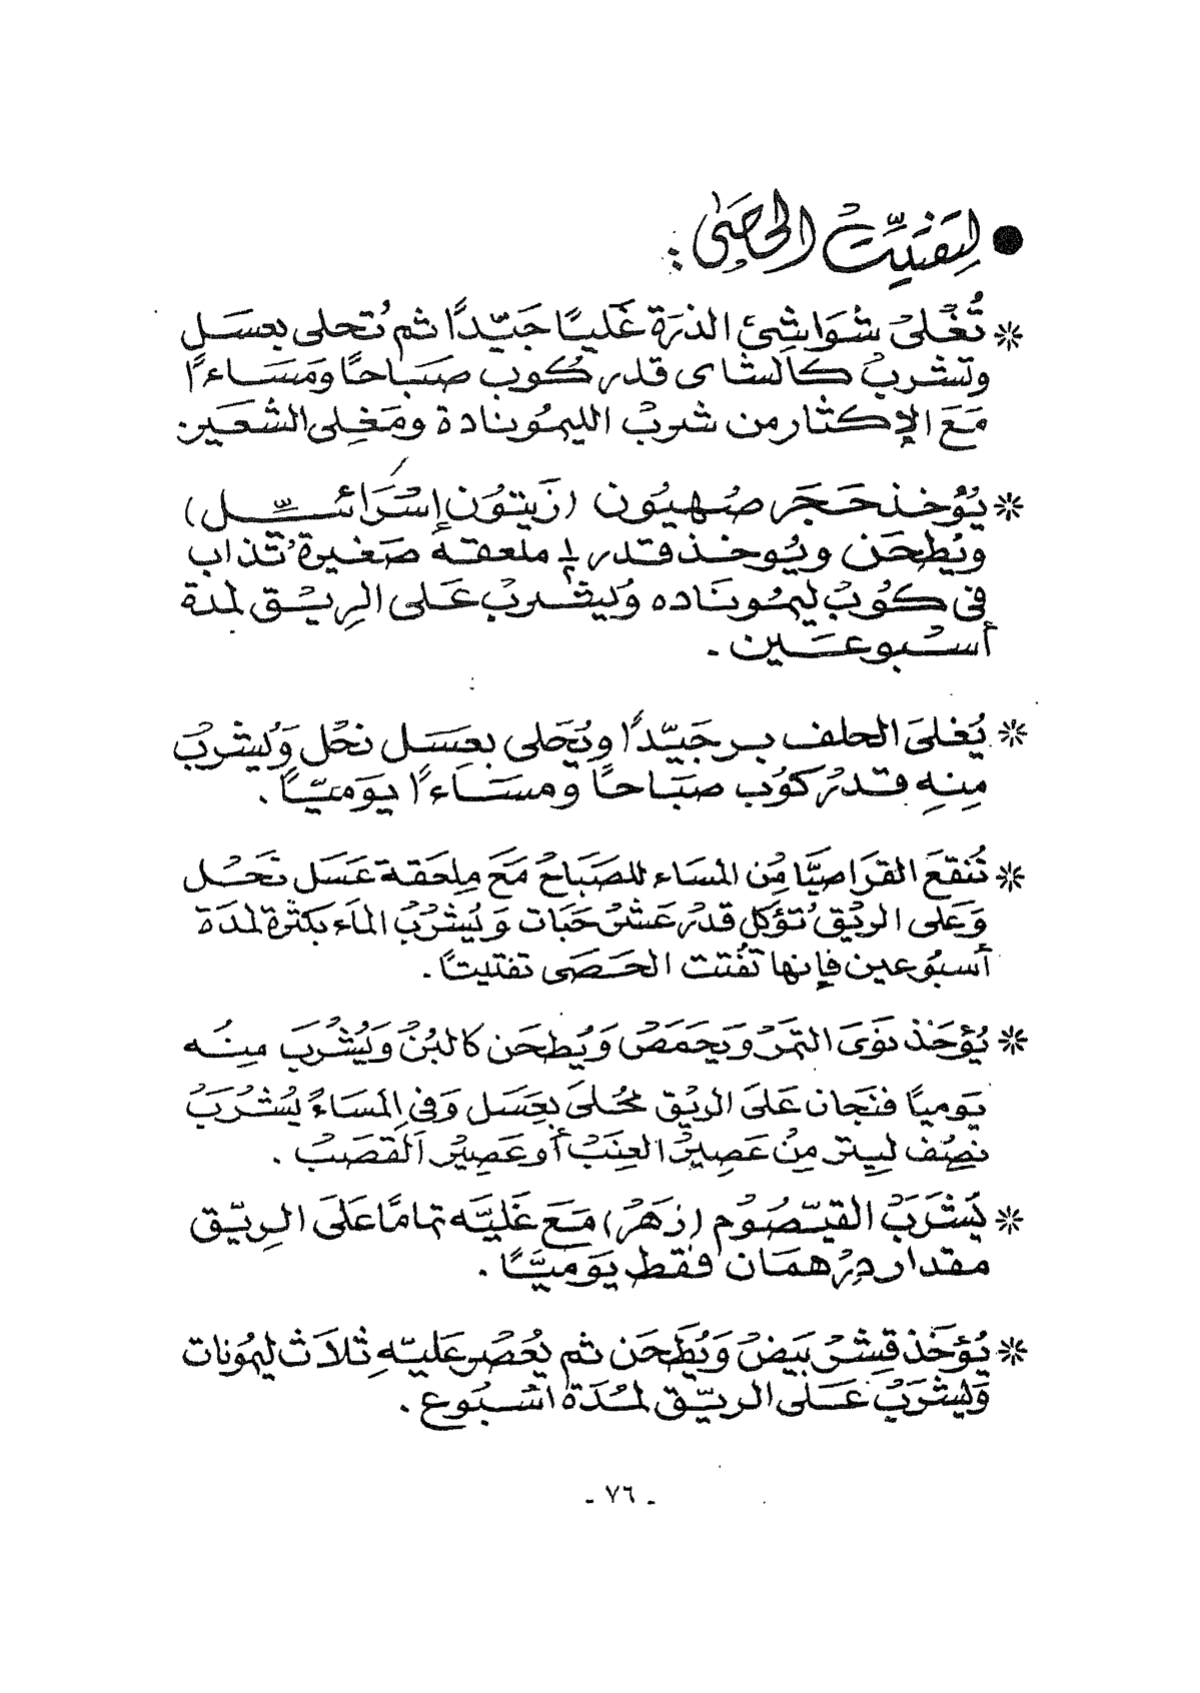 ● لِتَفتيِّت الحَصَى :
* تُغْلىَ شوَاشِئ الذرَة غَليًا جَيّدًا ثم تُحلى بعسَل
وتشربُ كالشاى قدر كُوب صبَاحًا وَمَسَاءًا
مَعَ الإكثار من شربْ الليمُونادة ومَغلِى الشعَير
* يُؤخذ حَجَر صُهيُون (زَيتوُن إسْرَائسّل)
ويُطحَن ويُوخذ قدر ½ ملعقه صَغيرة تُذاب
فى كُوبْ ليمُونَاده وَليشربْ عَلى الرِيْق لمدة
أسْبوعَين .
* يُغلىَ الحلف بر جَيّدًا ويُحَلى بعِسَل نحْل وَليُشربْ
مِنهِ قدرْ كوُب صبَاحًا ومسَاءًا يوَميًّا .
* تُنقعَ القرَاصيَّا مِن المسَاء للصَبَاحْ مَعَ مِلعَقة عَسَل نَحْل
وَعَلى الريْق تُؤكل قدرْ عَشرْ حَبَات وَيُشْربُ الماَء بكثرة لمدَة
أسبُوعين فإنها تفُتت الحَصَى تفتيتًا .
* يُؤخَذ نوَىَ التمَرْ وَيَحَمَصْ وَيُطحَن كالبُنْ وَيُشْرَبَ مِنُه
يوَمياً فنَجان عَلىَ الريْق محُلىَ بعِسَل وَفى المسَاءً يُشْرَبَ
نصِْف ليِتر مِنْ عَصِيرْ العِنَبْ أو عَصِيْر القَصَبْ .
* يَشْرَبَ القيّصُوم (زهَرْ) مَعَ غَليَّه تمامًا عَلَى الرِيّق
مقدار دِرْهمَان فقط يوَميًّا .
* يُؤخَذ قِشرْ بَيَضْ وَيُطَحَن ثم يُعْصر عَليّهِ ثلاَث ليمُونات
وَليشْرَبُ عَلى الريّق لمُدَة اسْبُوع .
- ٧٦ -